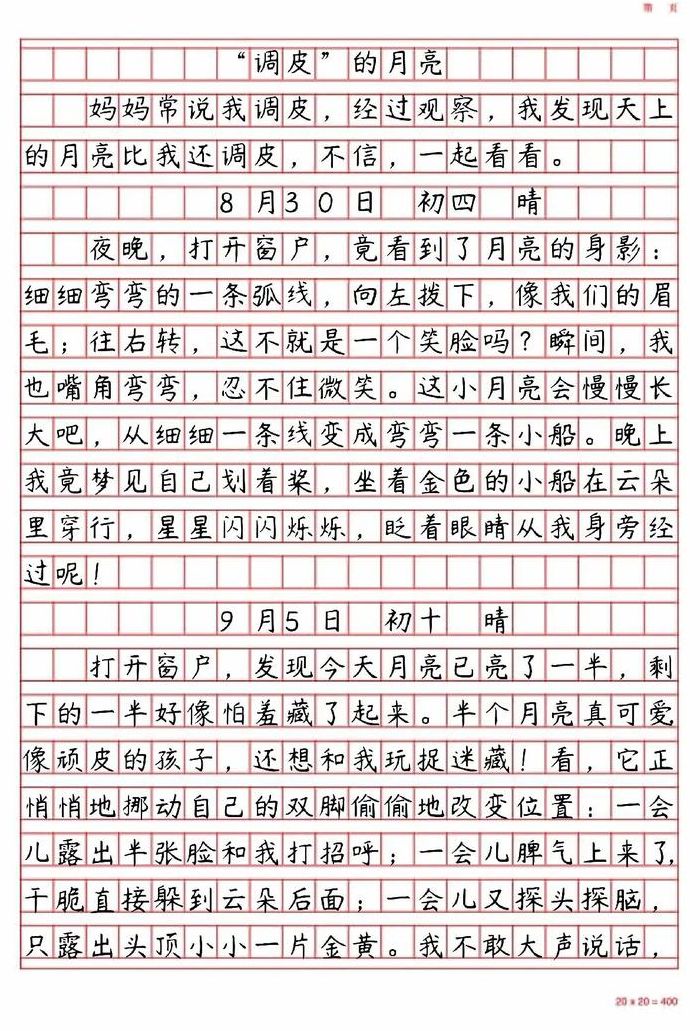 第 页
“调皮”的月亮
妈妈常说我调皮，经过观察，我发现天上
的月亮比我还调皮，不信，一起看看。
8月30日 初四 晴
夜晚，打开窗户，竟看到了月亮的身影：
细细弯弯的一条弧线，向左拨下，像我们的眉
毛；往右转，这不就是一个笑脸吗？瞬间，我
也嘴角弯弯，忍不住微笑。这小月亮会慢慢长
大吧，从细细一条线变成弯弯一条小船。晚上
我竟梦见自己划着桨，坐着金色的小船在云朵
里穿行，星星闪闪烁烁，眨着眼睛从我身旁经
过呢！
9月5日 初十 晴
打开窗户，发现今天月亮已亮了一半，剩
下的一半好像怕羞藏了起来。半个月亮真可爱
像顽皮的孩子，还想和我玩捉迷藏！看，它正
悄悄地挪动自己的双脚偷偷地改变位置：一会
儿露出半张脸和我打招呼；一会儿脾气上来了，
干脆直接躲到云朵后面；一会儿又探头探脑，
只露出头顶小小一片金黄。我不敢大声说话，
20*20=400